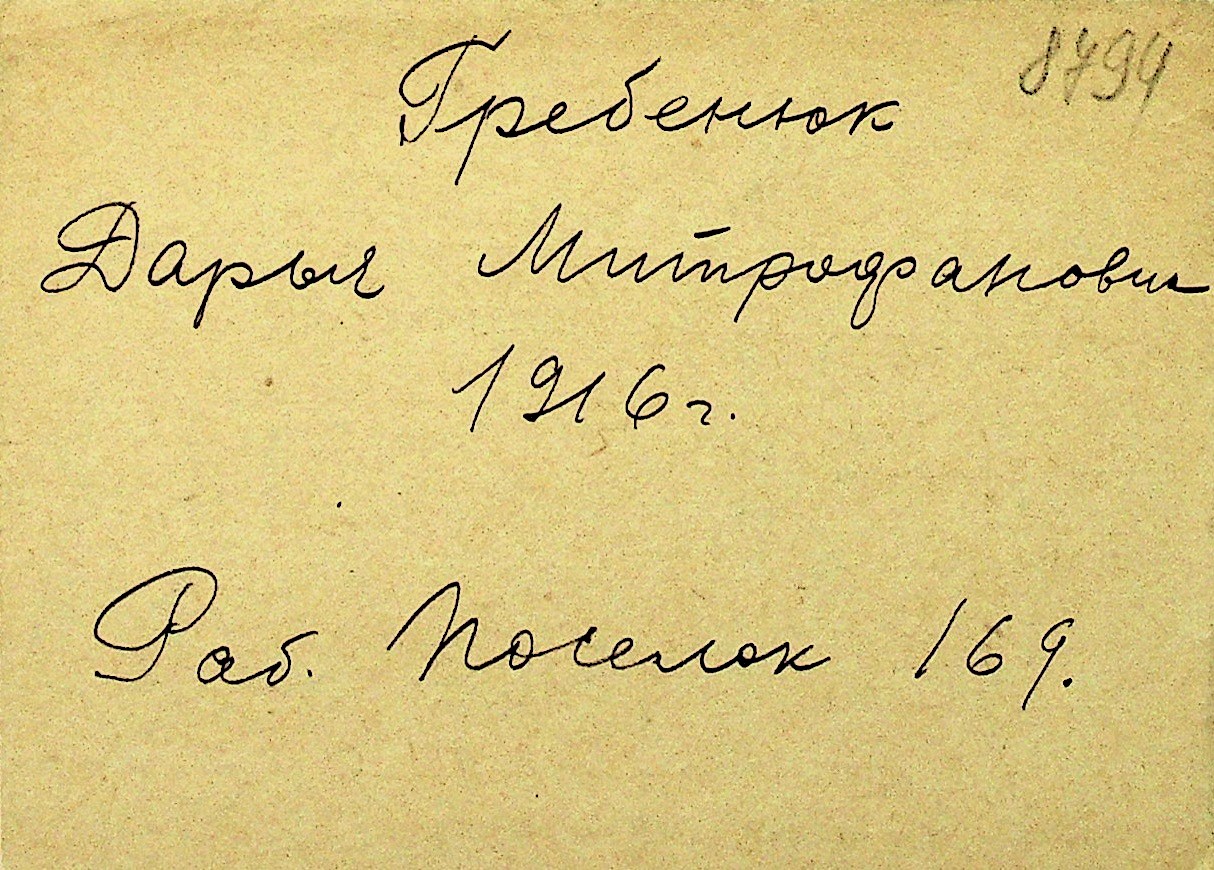 8794
Гребенюк
Дарья Митрофановна
1916 г.
Раб. Поселок 169.